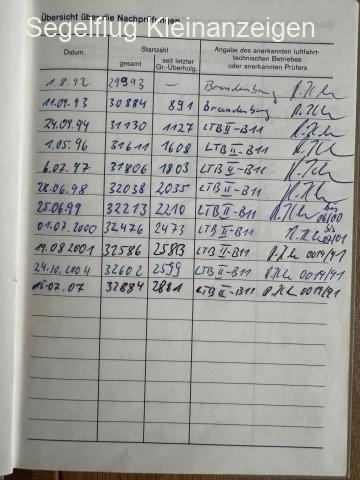 Segelflug Kleinanzeigen
Übersicht über die Nachprüfungen
Datum Startzahl Angabe des anerkannten luftfahrt-
gesamt seit letzter technischen Betriebes
Gr.-Überholg. oder anerkannten Prüfers
1.8.92 29993 — Brandenburg
11.09.93 30884 891 Brandenburg
24.09.94 31130 1127 LTB II-B11
1.05.96 31611 1608 LTB II-B11
6.02.97 31806 1803 LTB II-B11
28.06.98 32038 2035 LTB II-B11
25.06.99 32213 2210 LTB II-B11 bis 06/00
01.07.2000 32476 2473 LTB II-B11 bis 07/01
19.08.2001 32586 2583 LTB II-B11 0019/91
24.10.2004 32602 2599 LTB II-B11 0019/91
15.07.07 32884 2881 LTB II-B11 0019/91